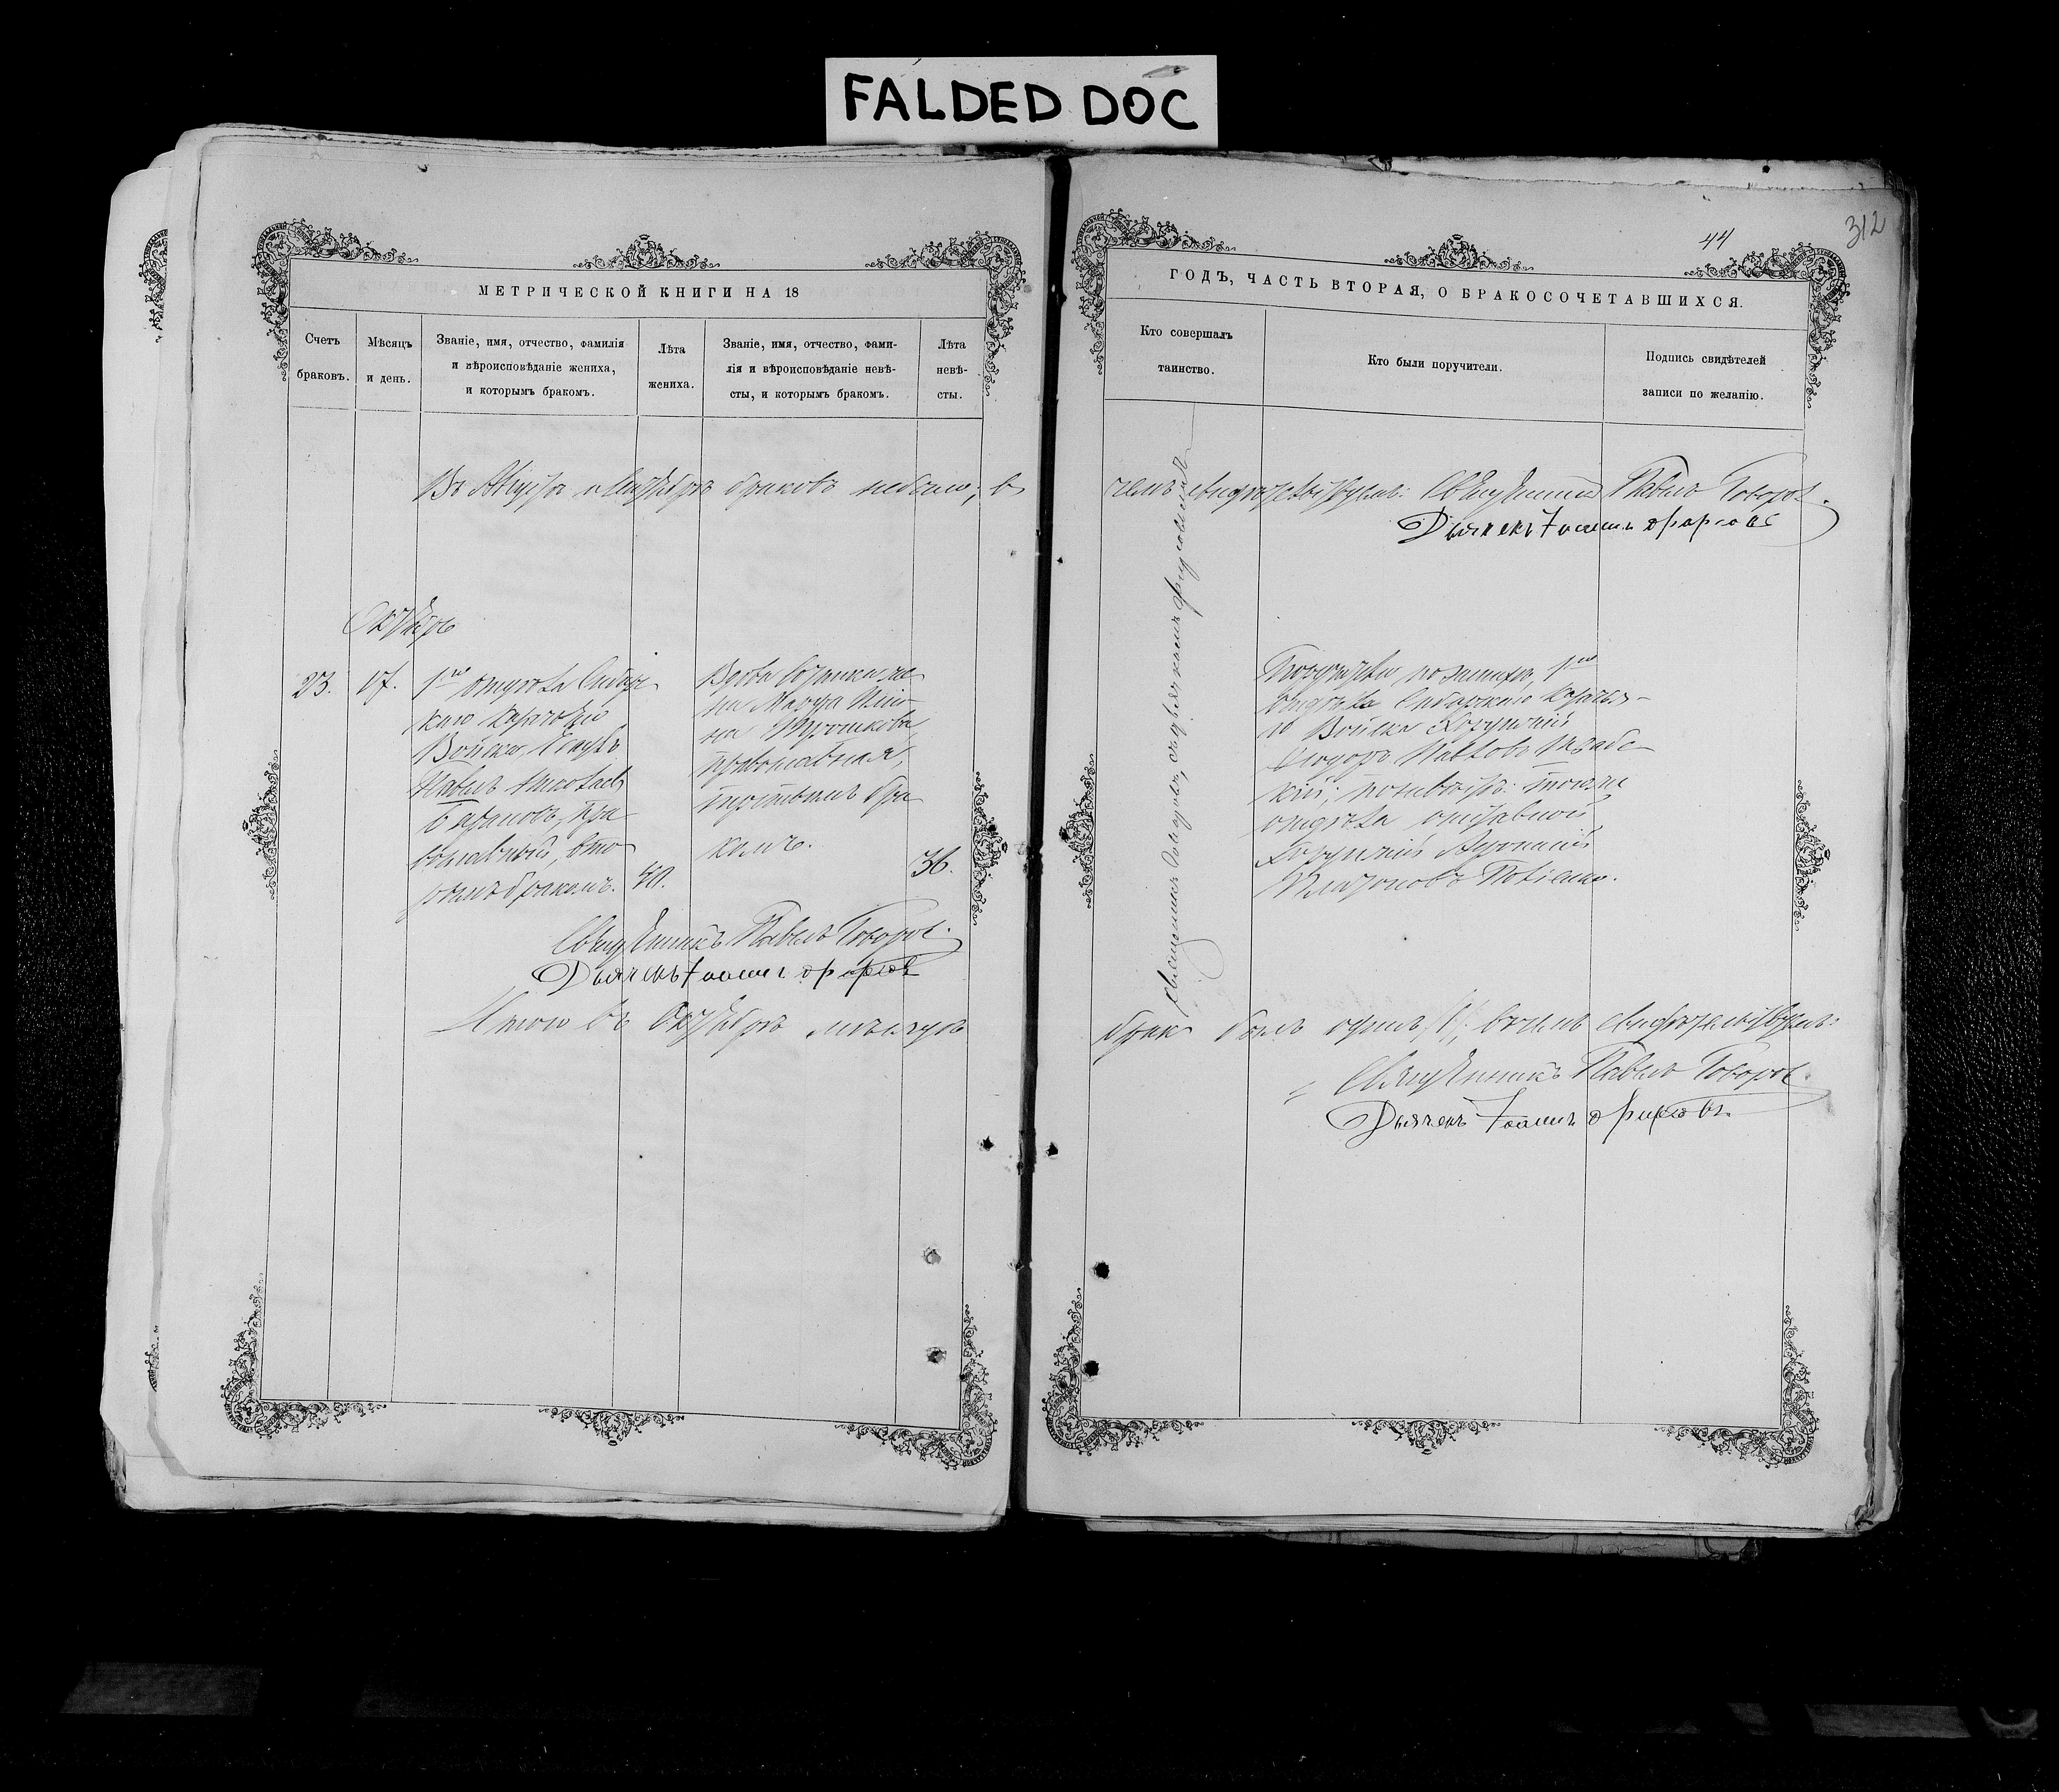 FALDED DOC
312
44
МЕТРИЧЕСКОЙ КНИГИ НА 18
Счетъ браковъ.
Мѣсяцъ и день.
Званіе, имя, отчество, фамилія
и вѣроисповѣданіе жениха,
и которымъ бракомъ.
Лѣта жениха.
Званіе, имя, отчество, фами-
лія и вѣроисповѣданіе невѣ-
сты, и которымъ бракомъ.
Лѣта
невѣ-
сты.
Въ Августѣ и Сентябрѣ браковъ небыло; в
Октябрь
23.
17.
1го отдѣла Сибир
скаго Казачьяго
Войска,
Павелъ Николаевъ
Барановъ, пра
вославный, вто
рымъ бракомъ.
40.
Вдова
на
на
православная,
третьимъ бра
комъ.
36.
Священникъ Павелъ Говоровъ.
Дьячекъ Іоаннъ
Итого въ Октябрѣ мѣсяцѣ
ГОДЪ, ЧАСТЬ ВТОРАЯ, О БРАКОСОЧЕТАВШИХСЯ.
Кто совершалъ
таинство.
Кто были поручители.
Подпись свидѣтелей
записи по желанію.
чемъ свидѣтельствуемъ: Священникъ Павелъ Говоровъ.
Дьячекъ Іоаннъ
Поручители по женихѣ, 1го
отдѣла Сибирскаго Казачья-
го Войска Хорунжій
Ѳедоръ Павловъ
кій; по невѣстѣ: тогоже
отдѣла отставной
Хорунжій
Платоновъ
бракъ былъ одинъ /1/, въ чемъ свидѣтельствуемъ:
Священникъ Павелъ Говоровъ.
Дьячекъ Іоаннъ